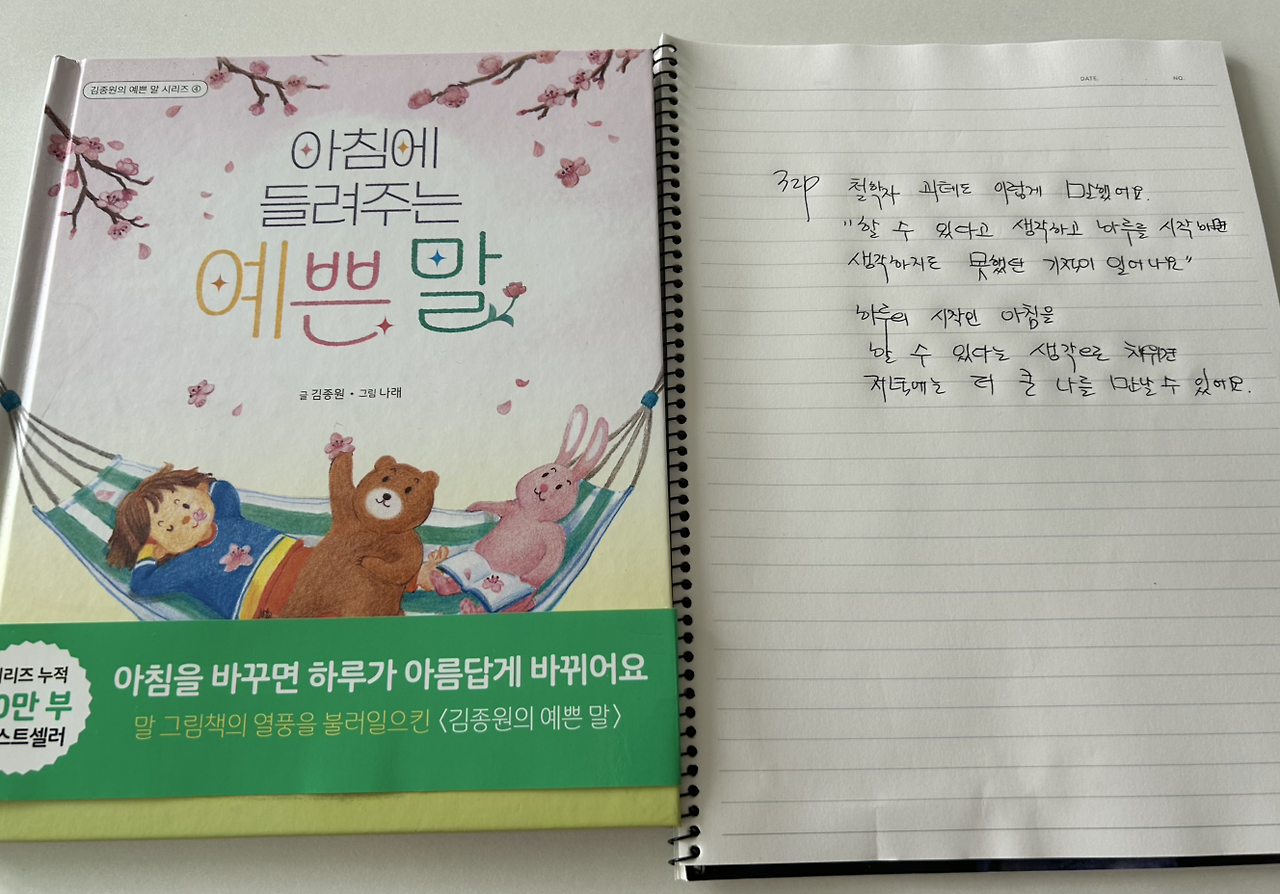 김종원의 예쁜 말 시리즈 ④
아침에
들려주는
예쁜 말
글 김종원 • 그림 나래
리즈 누적
0만 부
스트셀러
아침을 바꾸면 하루가 아름답게 바뀌어요
말 그림책의 열풍을 불러일으킨 〈김종원의 예쁜 말〉
DATE. NO.
32p 철학자 괴테도 이렇게 말했어요.
"할 수 있다고 생각하고 하루를 시작하면
생각하지도 못했던 기적이 일어나요"
하루의 시작인 아침을
할 수 있다는 생각으로 채우면
저녁에는 더 큰 나를 만날 수 있어요.